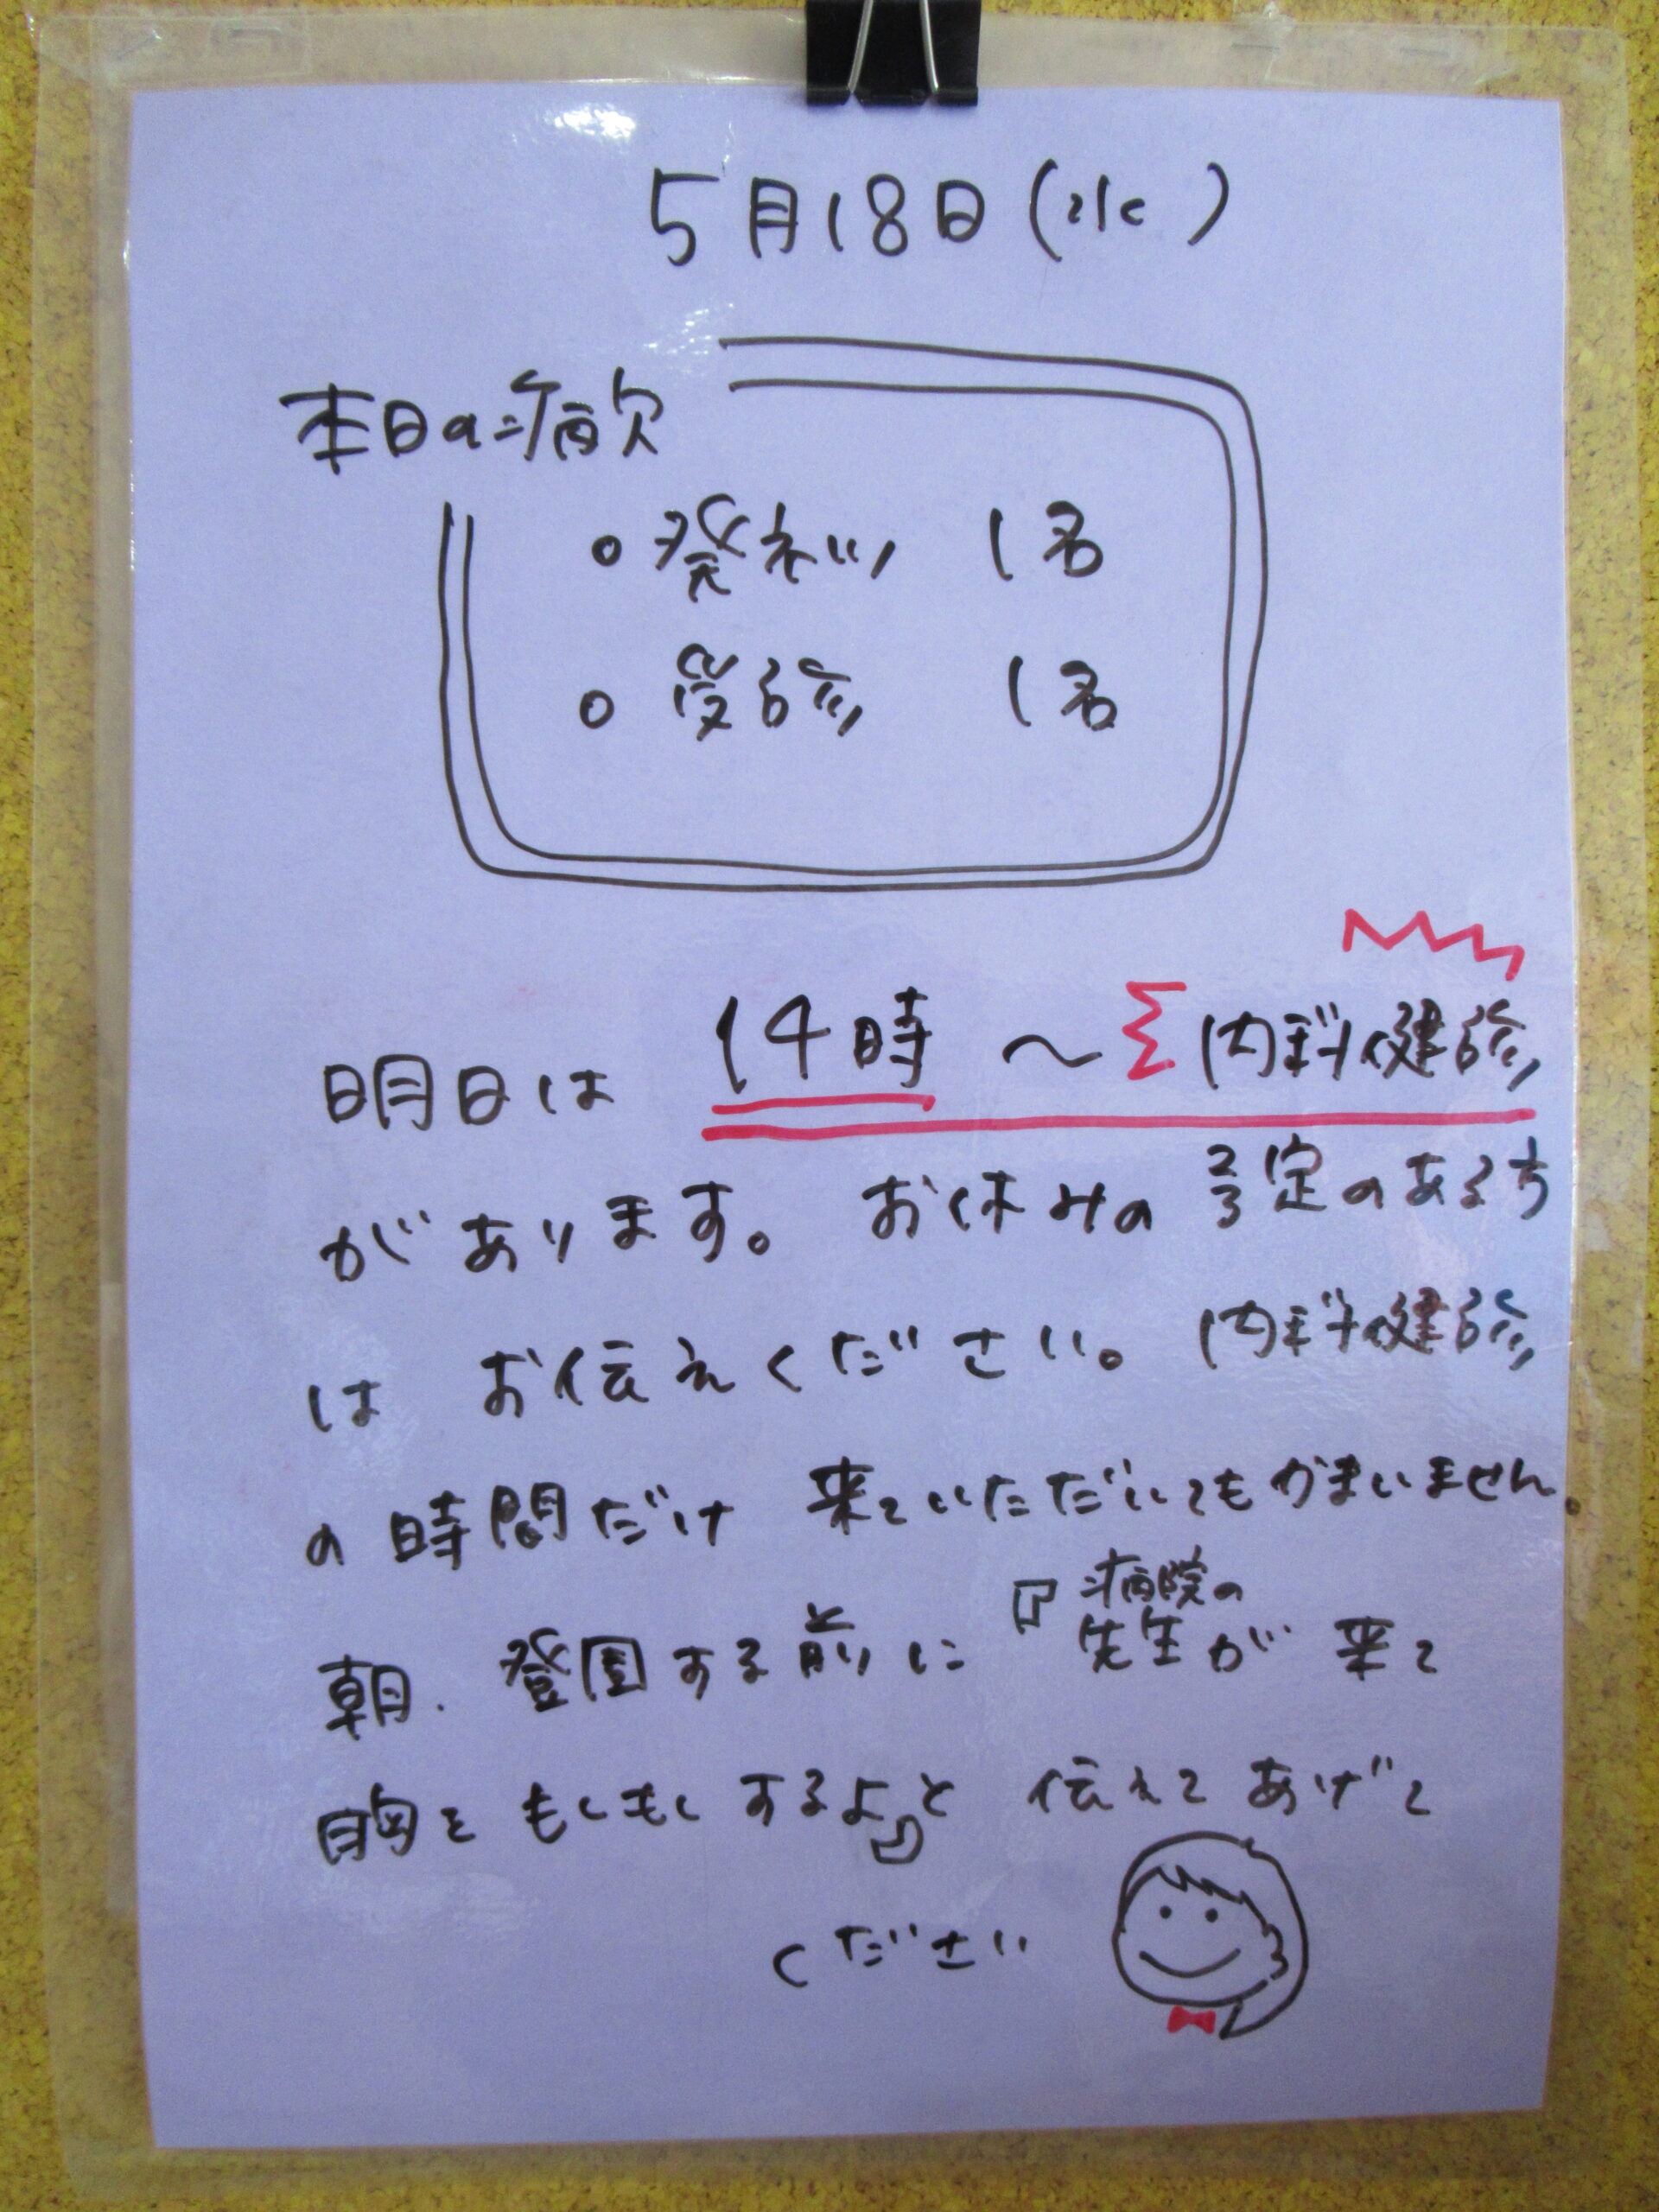 5月18日(水)
本日の病欠
○発ネツ 1名
○受診 1名
明日は 14時～内科健診
があります。お休みの予定のある方
は お伝えください。内科健診
の時間だけ 来ていただいてもかまいません。
朝、登園する前に『病院の先生が来て
胸をもしもしするよ』と 伝えてあげて
ください